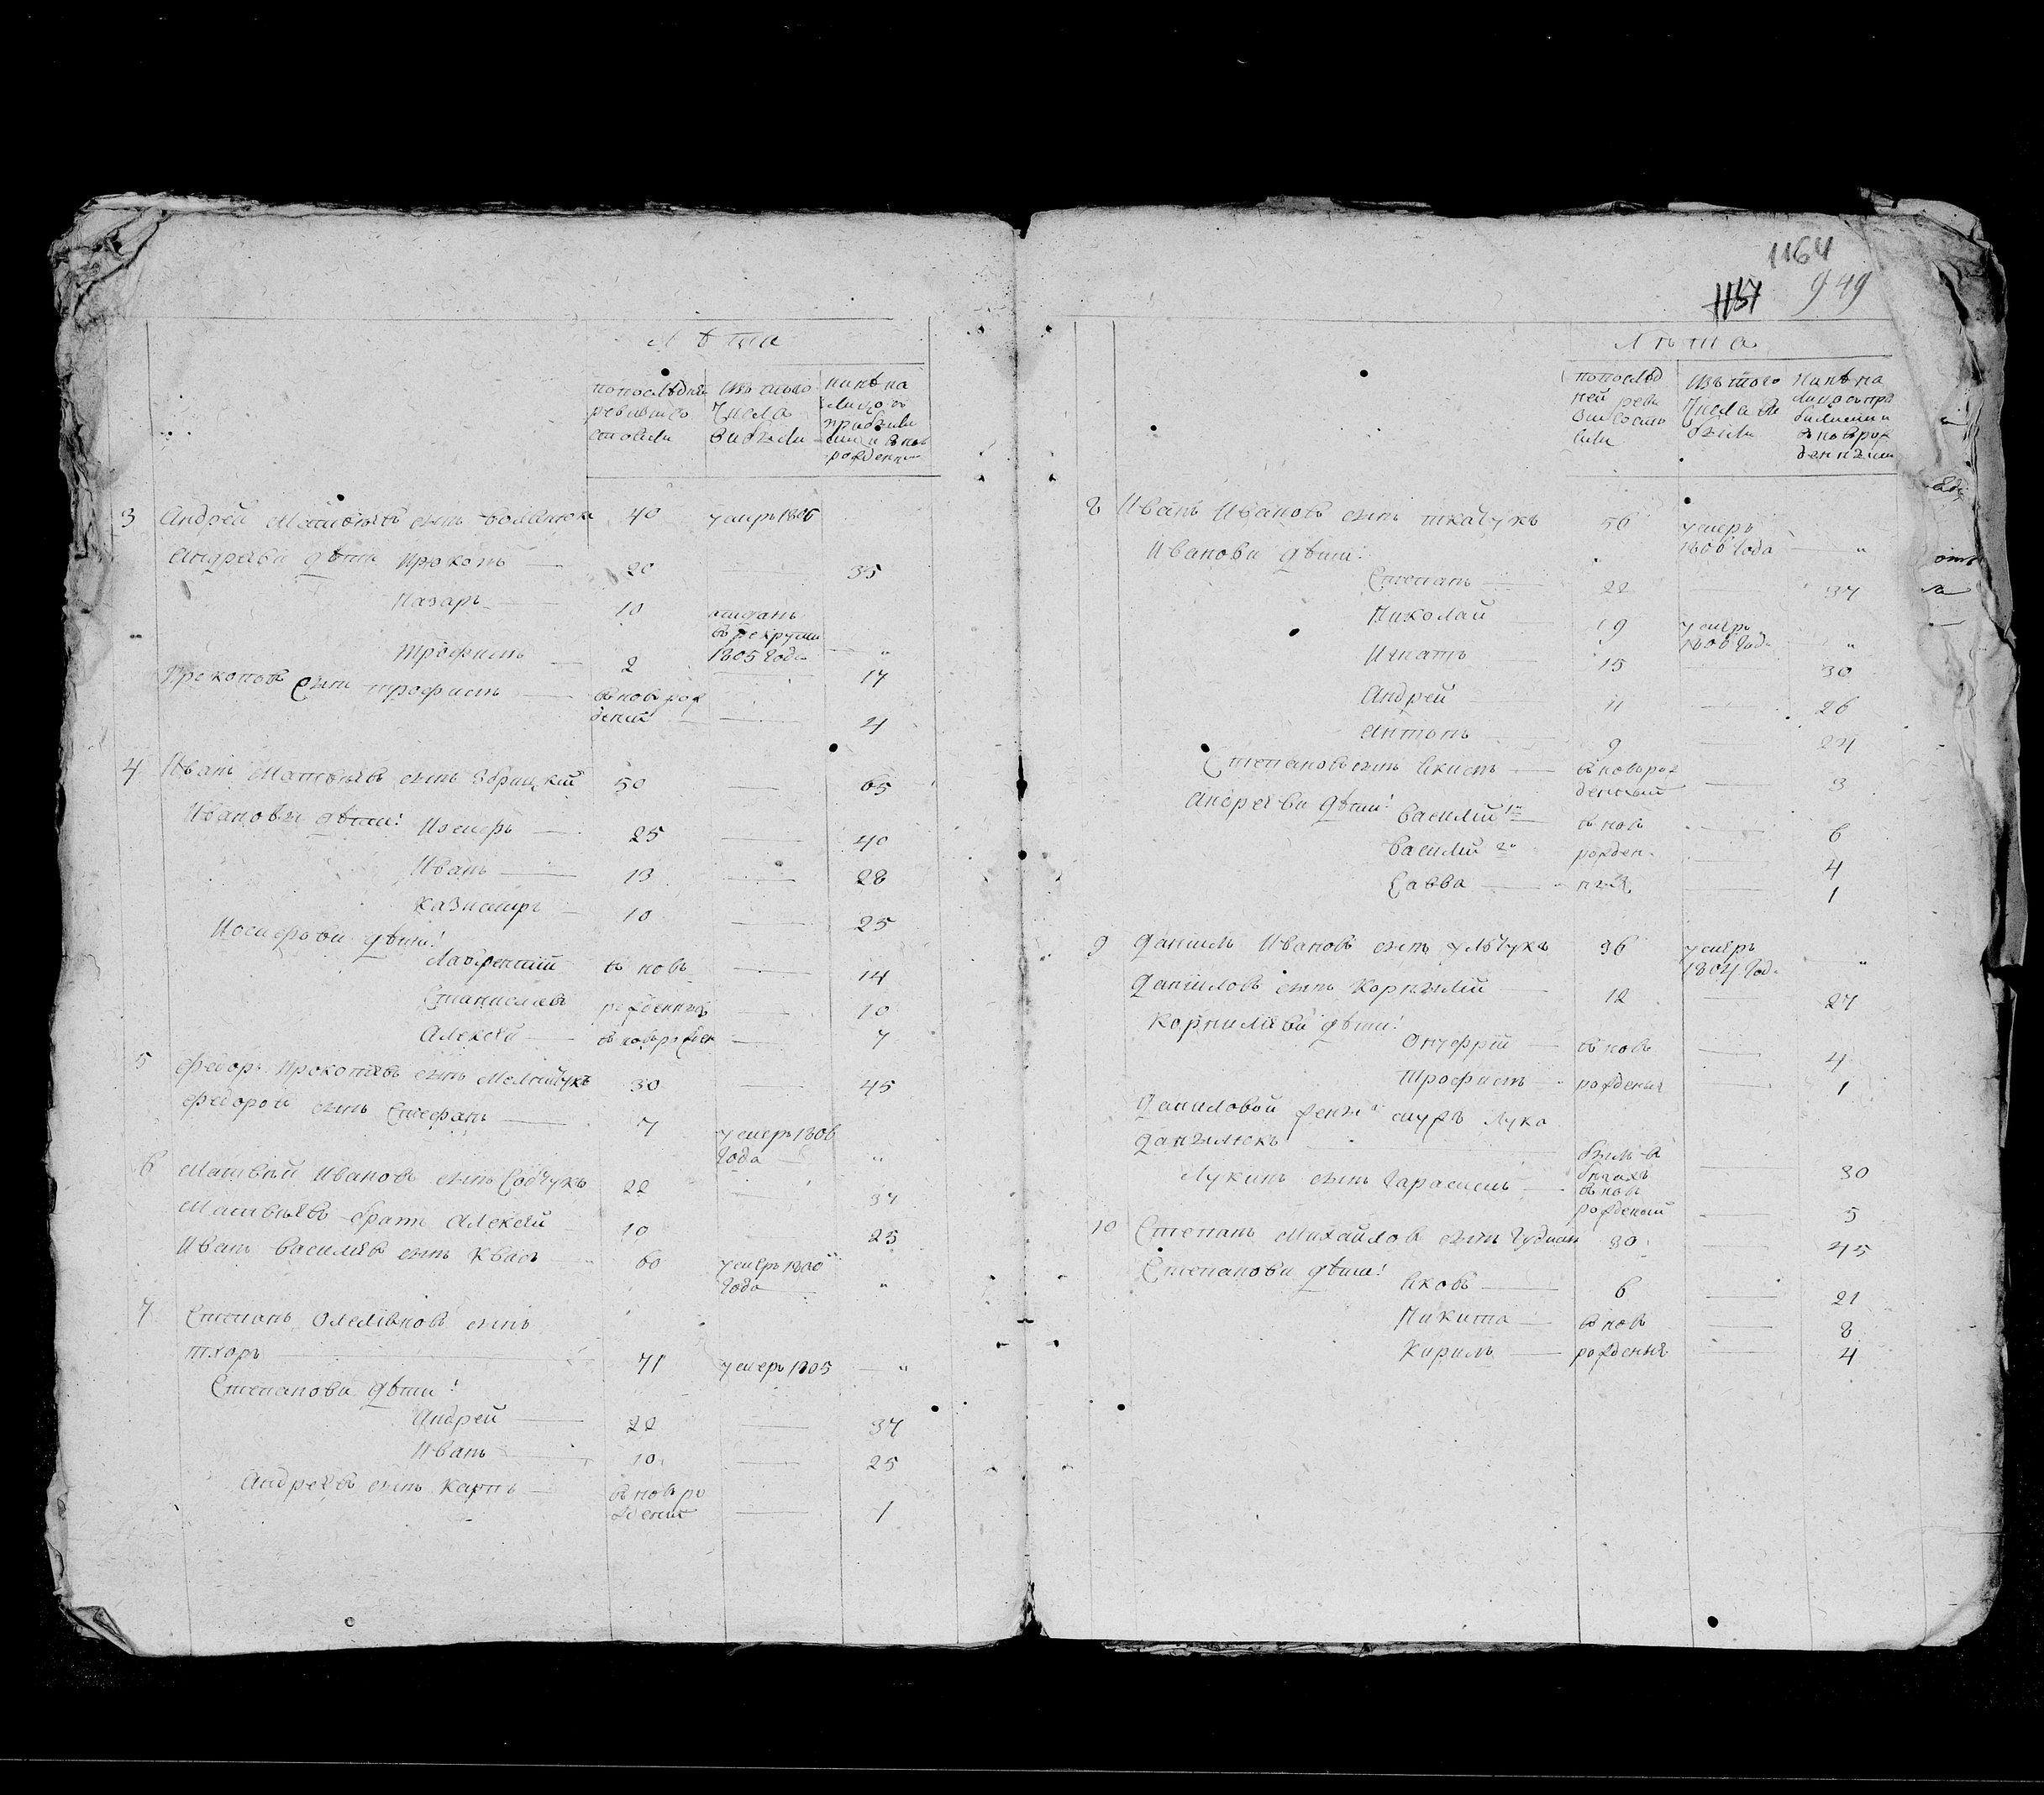 1164
1157 949
Лѣта
попослѣдней ревизіи состояли
изъ того числа выбыли
нинѣ на лицо съ прибылими и вновь рожденн
3 Андрей Матвѣевъ сынъ 40 умеръ 1806
Андрѣеви дѣти Прокопъ — 20 — 35
Назаръ — 10 отданъ въ рекруты 1805 года — "
Трофимъ — 2 — 17
Прокоповъ сынъ Трофимъ — вновь рожденій — 4
4 Иванъ Матвѣевъ сынъ Збрицкій 50 — 65
Ивановы дѣти: Иосифъ — 25 — 40
Иванъ — 13 — 28
Казимиръ — 10 — 25
Иосифови дѣти:
Лаврентій вновь — 14
Станиславъ рожденныя — 10
Алексѣй — вновь рожден — 7
5 Федоръ Прокопіевъ сынъ 30 — 45
Федоровъ сынъ Стефанъ — 7 умеръ 1806 года — "
6 Матвѣй Ивановъ сынъ Собчукъ 22 — 37
Матвѣевъ братъ Алексѣй 10 — 25
Иванъ Василіевъ сынъ Квасъ 60 умеръ 1800 года — "
7 Степанъ Омеляновъ сынъ
Тхоръ — 71 умеръ 1805 — "
Степанови дѣти:
Андрей — 22 — 37
Иванъ — 10 — 25
Андреевъ сынъ Карпъ — вновь рожденій — 1
Лѣта
попослѣдней ревизіи состояли
изъ того числа выбыли
нинѣ на лицо съ прибылими и вновь рожденными
8 Иванъ Ивановъ сынъ Ткачукъ 56 умеръ 1806 года — "
Иванови дѣти:
Степанъ — 22 — 37
Николай — 19 умеръ 1806 года — "
Игнатъ — 15 — 30
Андрей — 11 — 26
Антонъ — 9 — 24
Степановъ сынъ Якимъ — вновь рожденный — 3
Андрееви дѣти: Василій 1й вновь — 6
Василій 2й рожден — 4
Савва — ныя — 1
9 Даніилъ Ивановъ сынъ 36 умеръ 1804 года — "
Даніиловъ сынъ Корнилій — 12 — 27
Корниліеви дѣти:
Онуфрій — вновь — 4
Трофимъ — рожденыя — 1
Даниловой жены мужъ Лука
Данилюкъ — былъ в бѣгахъ — 30
Лукинъ сынъ Гарасимъ — вновь рожденый — 5
10 Степанъ Михайловъ сынъ Гудманъ 30 — 45
Степанови дѣти:
Яковъ — 6 — 21
Никита — вновь — 8
Кирилъ — рожденыя — 4